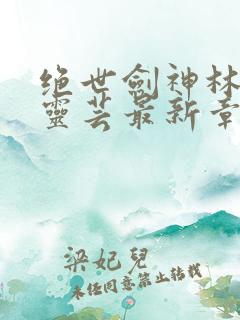 绝世劍神林
靈芸最新章
梁妃兒
未经同意禁止转载